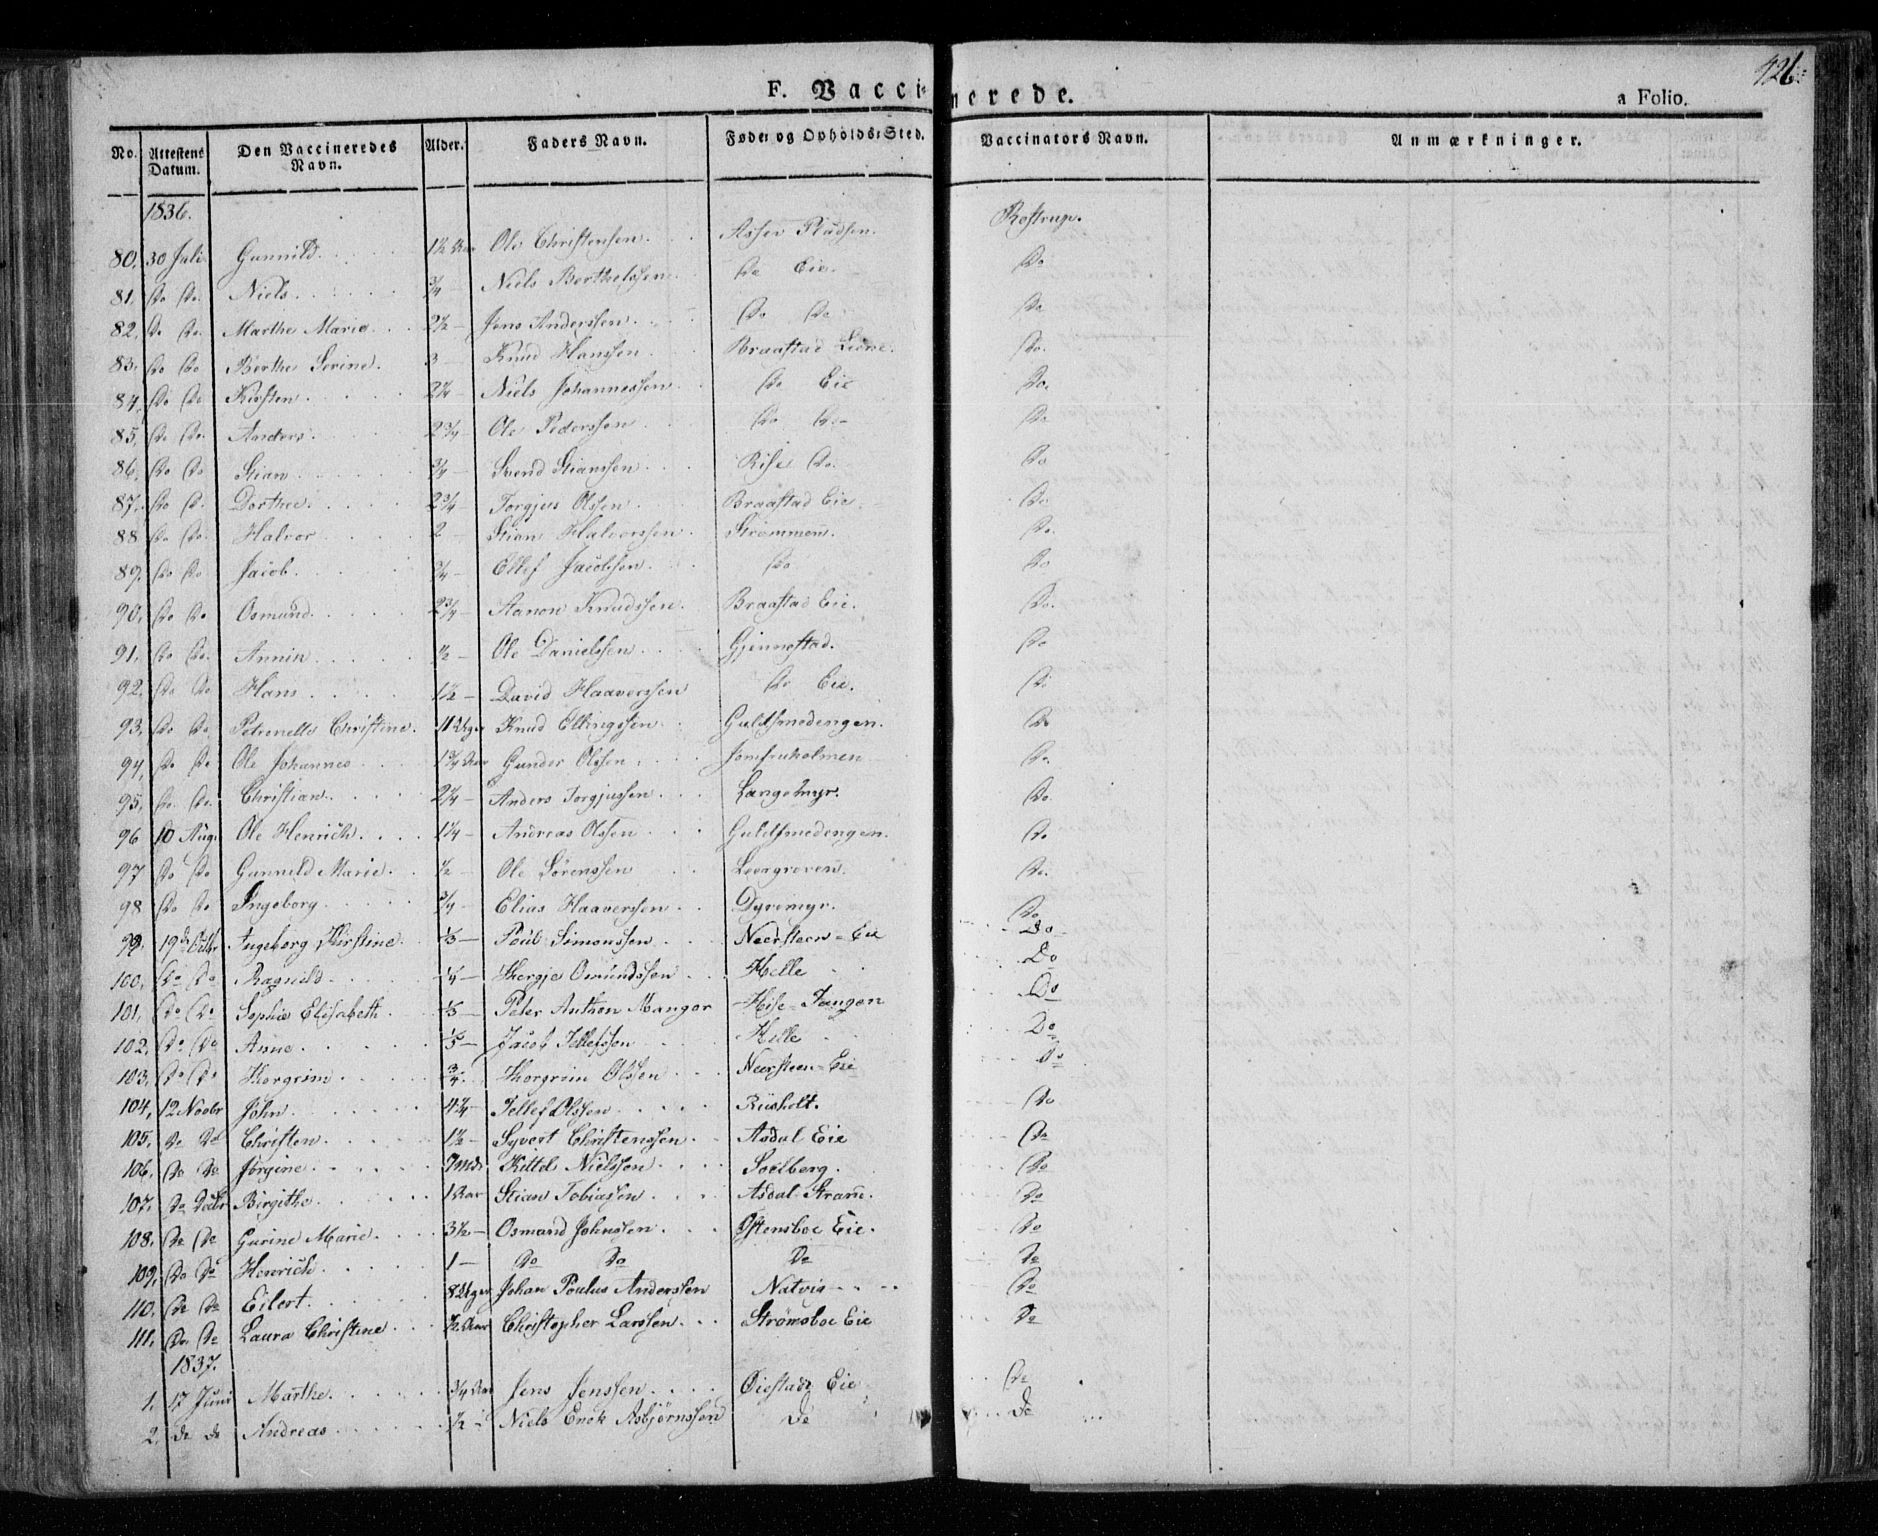 426.
F. Vaccinerede. a Folio.
No. Attestens Datum. Den Vaccineredes Navn. Alder. Faders Navn. Føde- og Opholds-Sted. Vaccinators Navn. Anmærkninger.
1836.
80. 30 Juli Gunnild. 1½ Aar Ole Christensen. Asser Pladsen. Rostrup.
81. Do Do. Niels. ¾ – Niels Berthelssen Do Eie. Do
82. Do Do. Marthe Marie 2½ – Jens Anderssen. Do Do. Do
83. Do Do Berthe Serine. 3 Knud Hanssen. Braastad Do.
84. Do Do Kirsten 2¼ – Niels Johannessen Do Eie Do.
85. Do Do. Anders. 2¾ – Ole Pederssen Do Do – Do
86. Do Do Stian ¾ – Svend Stianssen Rise Do. Do
87. Do D. Dorthee. 2¾ – Torgjus Olssen Braastad Eie. Do.
88 Do Do. Halvor 2 Stian Halvorssen. Strømmen. Do.
89. Do Do Jacob. ¾ – Ellef Jacobssen. Do Do
90. Do Do Osmund. 2¾ – Aanon Knudssen. Braastad Eie. Do.
91. Do Do. Annin ½ – Ole Danielssen Gjennestad. Do
92. Do Do Hans 1½ – David Haaverssen Do Eie. Do
93. Do Do Petronelle Christine. 11 Uger Knud Ellingssen. Guldsmedengen. Do
94. Do Do Ole Johannes 1¾ Aar Gunder Olssen Jomfruholmen Do.
95. Do. Do. Christian. 2¼ – Anders Torgjussen Langemyr. Do.
96 10 Aug. Ole Henrich. 1¼ – Andreas Olssen Guldsmedengen. Do
97 Do Do Gunnild Marie. ½ – Ole Sørenssen Do.
98 Do Do Ingeborg ¾ – Elias Haaverssen Dyremyr. Do
99. 19 Octbr Ingeborg Kirstine. ⅓ – Poul Simonssen Neersteen-Eie Do
100. Do Do Ragnild. ¼ – Thorgje Omundssen Helle Do
101. Do Do Sophie Elisabeth ⅓ – Peter Anthon Mangor Hise-Tangen Do
102. Do Do Anne ⅓ – Jacob Tellefssen Helle Do
103. Do Do Thorgrim ¾. Thorgrim Olssen Neersteen-Eie Do
104. 12 Novbr John 4¼ – Tellef Olssen Riisholt. Do
105. Do Do Christen 1½ – Syvert Christenssen Asdal Eie Do
106. Do Do Jørgine 7 Mdr Kittel Nielssen Soelberg. Do
107. Do Decbr Birgithe 1 Aar Stian Tobiassen Asdal-Strøm. Do
108. Do Do Gurine Marie. 3½ – Osmund Johnssen Østensboe Eie. Do
109. Do Do Henrich. 1 – Do Do Do Do
110. Do Do Eilert. 8 Uger Johan Poulus Anderssen Natvig Do
111. Do. Do Laura Christine ½ Aar Christopher Larssen Strømsboe Eie Do
1837.
1. 17 Juni Marthe. ¾ Aar Jens Jenssen Øiestad Eie Do
2. Do Do Andreas ½ – Niels Enok Asbjørnssen Do Do